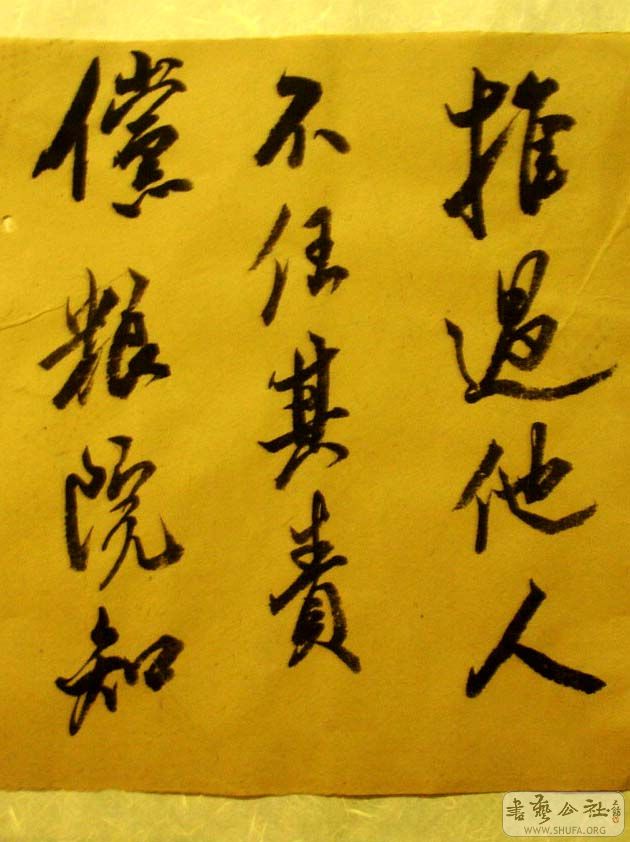 推過他人
不任其責
儻粮院知
書藝公社
WWW.SHUFA.ORG